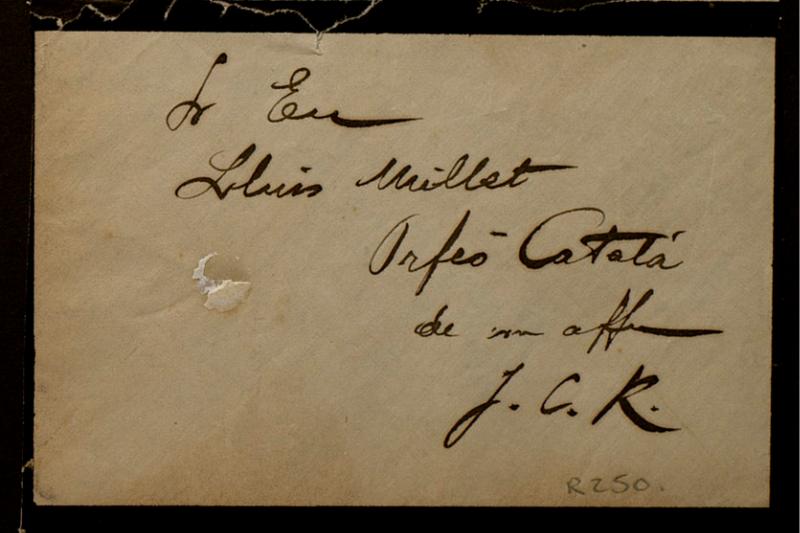 Sr En
Lluis Millet
Orfeó Català
de un affm
J. C. R.
R250.